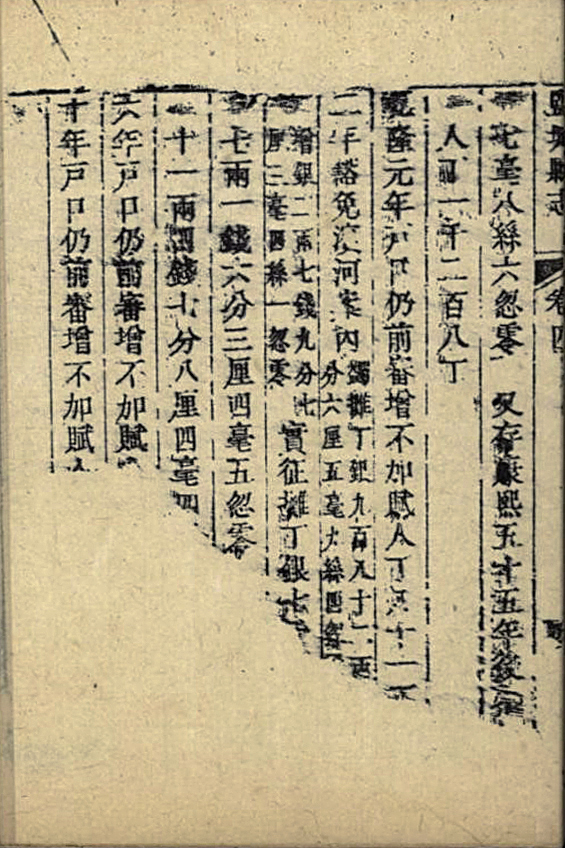 鹽城縣志
卷四
七毫八絲六忽零 又存康熙五十五年後
人丁一千二百八丁
乾隆元年戶口仍前審增不加賦人丁
二年豁免浚河案內
蠲攤丁銀九百八十二兩
分六厘五毫六絲四忽
增銀二兩七錢九分七
厘三毫四絲一忽零
實征攤丁銀七
七兩一錢六分三厘四毫五忽零
十一兩四錢七分八厘四毫四
六年戶口仍前審增不加賦
十年戶口仍前審增不加賦人